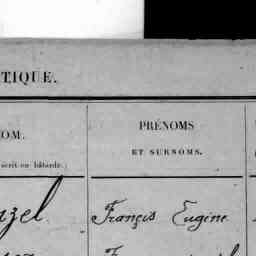 TIQUE.
OM.
écrit en bâtarde.)
PRÉNOMS
ET SURNOMS.
zel
François Eugène